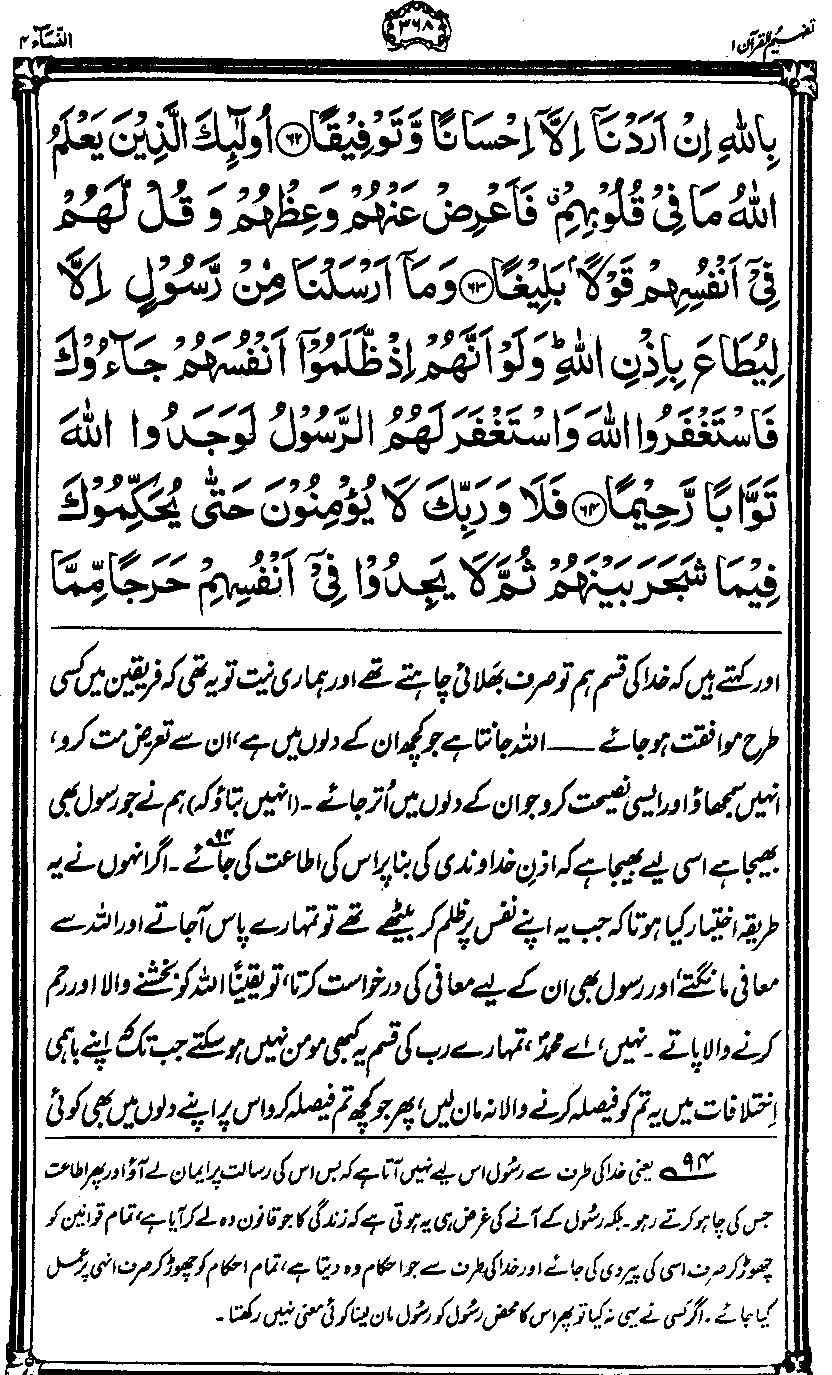 تفہیم القرآن ۱
۳۶۸
النسآء ۴
بِاللّٰهِ اِنْ اَرَدْنَاۤ اِلَّاۤ اِحْسَانًا وَّ تَوْفِيْقًا ﴿۶۲﴾ اُولٰٓئِكَ الَّذِيْنَ يَعْلَمُ
اللّٰهُ مَا فِيْ قُلُوْبِهِمْ ۗ فَاَعْرِضْ عَنْهُمْ وَعِظْهُمْ وَ قُلْ لَّهُمْ
فِيْۤ اَنْفُسِهِمْ قَوْلًاۢ بَلِيْغًا ﴿۶۳﴾ وَمَاۤ اَرْسَلْنَا مِنْ رَّسُوْلٍ اِلَّا
لِيُطَاعَ بِاِذْنِ اللّٰهِ ؕ وَلَوْ اَنَّهُمْ اِذْ ظَّلَمُوْۤا اَنْفُسَهُمْ جَآءُوْكَ
فَاسْتَغْفَرُوا اللّٰهَ وَاسْتَغْفَرَ لَهُمُ الرَّسُوْلُ لَوَجَدُوا اللّٰهَ
تَوَّابًا رَّحِيْمًا ﴿۶۴﴾ فَلَا وَرَبِّكَ لَا يُؤْمِنُوْنَ حَتّٰى يُحَكِّمُوْكَ
فِيْمَا شَجَرَ بَيْنَهُمْ ثُمَّ لَا يَجِدُوْا فِيْۤ اَنْفُسِهِمْ حَرَجًا مِّمَّا
اور کہتے ہیں کہ خدا کی قسم ہم تو صرف بھلائی چاہتے تھے اور ہماری نیت تو یہ تھی کہ فریقین میں کسی
طرح موافقت ہو جائے ــــــ اللہ جانتا ہے جو کچھ ان کے دلوں میں ہے، ان سے تعرض مت کرو،
انہیں سمجھاؤ اور ایسی نصیحت کرو جو ان کے دلوں میں اُتر جائے۔ (انہیں بتاؤ کہ) ہم نے جو رسول بھی
بھیجا ہے اسی لیے بھیجا ہے کہ اذنِ خداوندی کی بنا پر اس کی اطاعت کی جائے۹۴۔ اگر انہوں نے یہ
طریقہ اختیار کیا ہوتا کہ جب یہ اپنے نفس پر ظلم کر بیٹھے تھے تو تمہارے پاس آجاتے اور اللہ سے
معافی مانگتے، اور رسول بھی ان کے لیے معافی کی درخواست کرتا، تو یقیناً اللہ کو بخشنے والا اور رحم
کرنے والا پاتے۔ نہیں، اے محمدؐ، تمہارے رب کی قسم یہ کبھی مومن نہیں ہو سکتے جب تک کہ اپنے باہمی
اختلافات میں یہ تم کو فیصلہ کرنے والا نہ مان لیں، پھر جو کچھ تم فیصلہ کرو اس پر اپنے دلوں میں بھی کوئی
۹۴ یعنی خدا کی طرف سے رسُول اس لیے نہیں آتا ہے کہ بس اس کی رسالت پر ایمان لے آؤ اور پھر اطاعت
جس کی چاہو کرتے رہو۔ بلکہ رسُول کے آنے کی غرض ہی یہ ہوتی ہے کہ زندگی کا جو قانون وہ لے کر آیا ہے، تمام قوانین کو
چھوڑ کر صرف اسی کی پیروی کی جائے اور خدا کی طرف سے جو احکام وہ دیتا ہے، تمام احکام کو چھوڑ کر صرف انہی پر عمل
کیا جائے۔ اگر کسی نے یہی نہ کیا تو پھر اس کا محض رسُول کو رسُول مان لینا کوئی معنی نہیں رکھتا۔